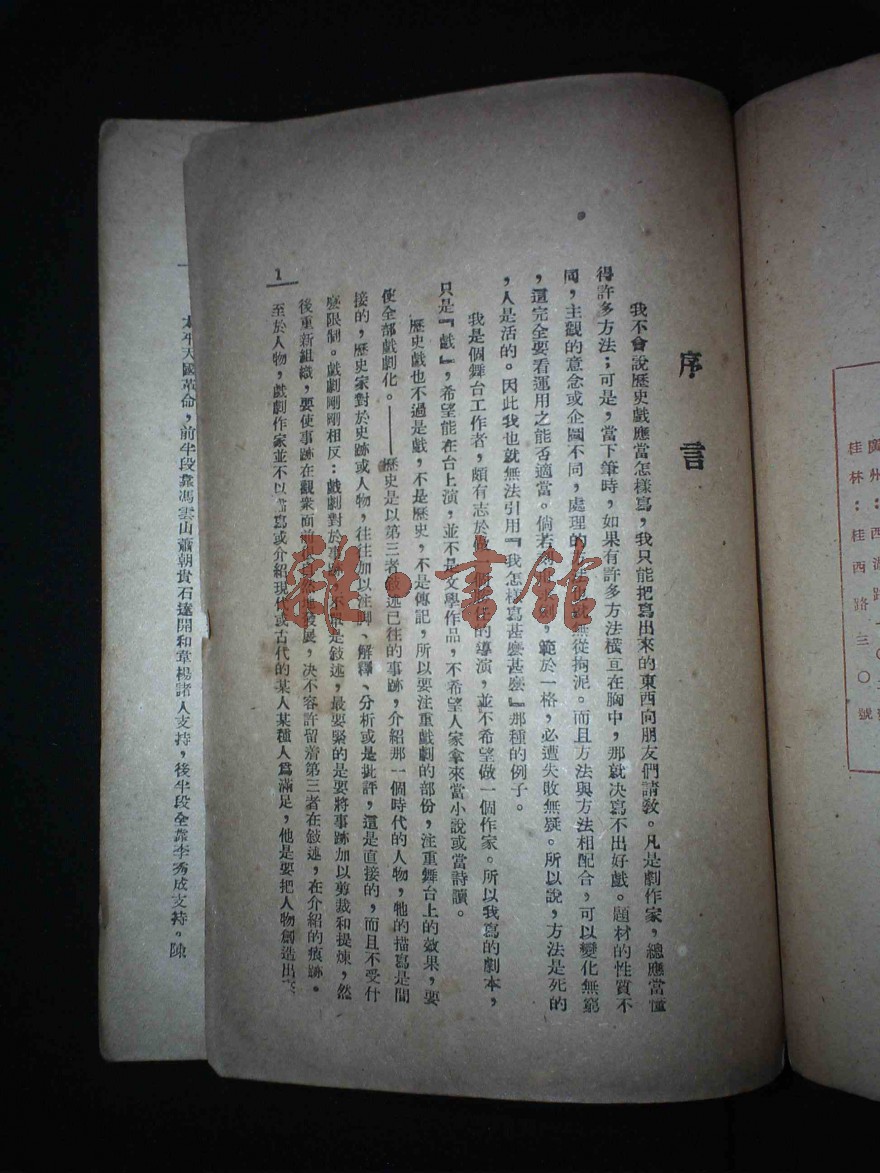 序言
我不會說歷史戲應當怎樣寫,我只能把寫出來的東西向朋友們請教。凡是劇作家,總應當懂
得許多方法;可是,當下筆時,如果有許多方法橫亙在胸中,那就決寫不出好戲。題材的性質不
同,主觀的意念或企圖不同,處理的方法也就無從拘泥。而且方法與方法相配合,可以變化無窮
,這完全要看運用之能否適當。倘若
範於一格,必遭失敗無疑。所以說,方法是死的
,人是活的。因此我也就無法引用『我怎樣寫甚麼甚麼』那種的例子。
我是個舞台工作者,頗有志於做一個
任的導演,並不希望做一個作家。所以我寫的劇本,
只是『戲』,希望能在台上演,並不是文學作品,不希望人家拿來當小說或當詩讀。
歷史戲也不過是戲,不是歷史,不是傳記,所以要注重戲劇的部份,注重舞台上的效果,要
使全部戲劇化。——歷史是以第三者敍述已往的事跡,介紹那一個時代的人物,牠的描寫是間
接的,歷史家對於史跡或人物,往往加以注脚、解釋、分析或是批評,這是直接的,而且不受什
麼限制。戲劇剛剛相反:戲劇對於事跡,不
是敍述,最要緊的是要將事跡加以剪裁和提煉,然
後重新組織,要使事跡在觀衆面前
發展,決不容許留着第三者在敍述,在介紹的痕跡。
至於人物,戲劇作家並不以描寫或介紹現代或古代的某人某種人爲滿足,他是要把人物創造出來
1
太平天國革命,前半段靠馮雲山蕭朝貴石達開和韋楊諸人支持,後半段全靠李秀成支持。陳
廣州:西湖路一〇
桂林:桂西路三〇號
雜·書館